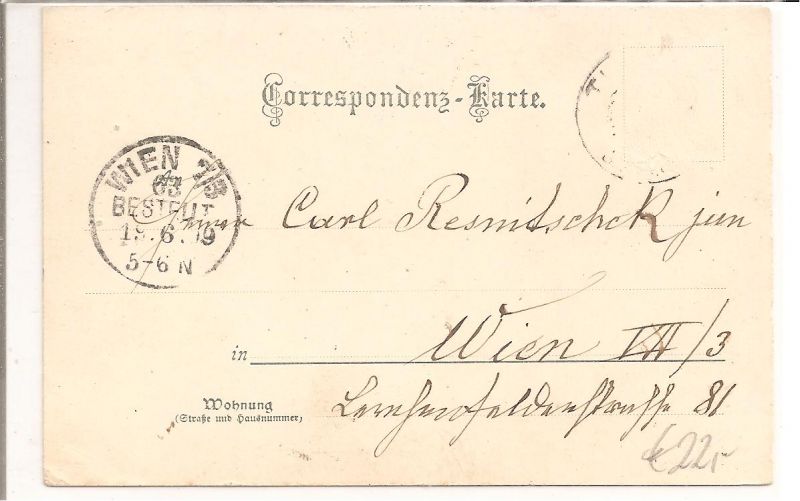 Correspondenz-Karte.
WIEN 7/3
63
BESTELLT
19.6. 99
5-6 N
Herrn Carl Resnitschek jun
in Wien VII/3
Wohnung
(Straße und Hausnummer)
Lerchenfelderstrasse 81
€ 22,-